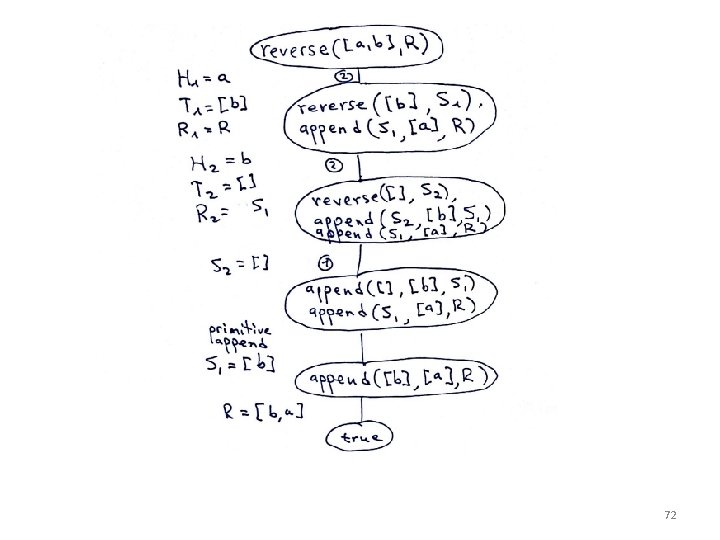 reverse([a,b],R)
H₁=a
②
T₁=[b]
R₁=R
reverse([b],S₁),
append(S₁,[a],R)
H₂=b
②
T₂=[]
R₂= S₁
reverse([],S₂),
append(S₂,[b],S₁)
append(S₁,[a],R)
S₂=[]
①
append([],[b],S₁)
append(S₁,[a],R)
primitive
append
S₁=[b]
append([b],[a],R)
R=[b,a]
true
72